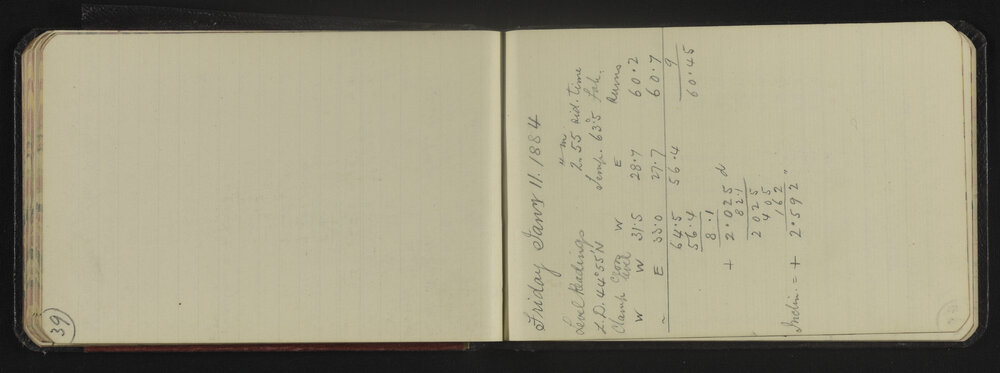 39
Friday Jany 11. 1884
Level Readings 2h 55m sid. time
Z.D. 44° 55' N Temp. 63°.5 Fah.
Clamp Eye level W E Means
W W 31.5 28.7 60.2
" E 33.0 27.7 60.7
64.5 56.4 9
56.4 60.45
8.1
+ 2.025 d
82.1
2025
405
162
Inclin. = + 2.592"